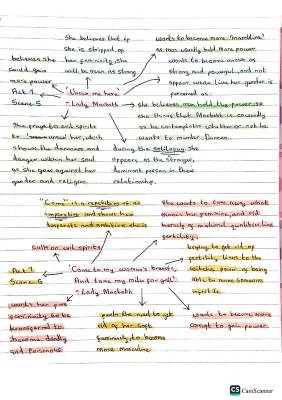 she believes that if
she is stripped of
her femininity, she
will be seen as strong
wants to become more "manlike"
as men usually held more power
wants to become known as
strong and powerful, and not
appear weak like her gender is
perceived as.
believes she
could gain
more power
Act 1
Scene 5
'Unsex me here'
- Lady Macbeth
she believes men hold the power, so
she thinks that Macbeth is cowardly
as he contemplates whether or not he
wants to murder Duncan.
She prays to evil spirits
to unsex her, which
shows the darkness and
danger within her soul
as she goes against her
gender and religion
during the soliloquy she
appears as the stronger,
dominant person in their
relationship.
"Come" is a repetition of an
imperative and shows how
desperate and ambitious she is
She wants to take away what
makes her feminine, and rid
herself of maternal qualities like
fertility.
calls on evil spirits
Act 1
Scene 5
'Come to my woman's breasts,
And take my milk for gall'
- Lady Macbeth
trying to get rid of
fertility links to the
witches power of being
able to make someone
infertile
wants her pure
femininity to be
transformed to
become deadly
and poisonous
feels the need to get
rid of her
femininity to become
more masculine
wants to become more
corrupt to gain power
CS CamScanner